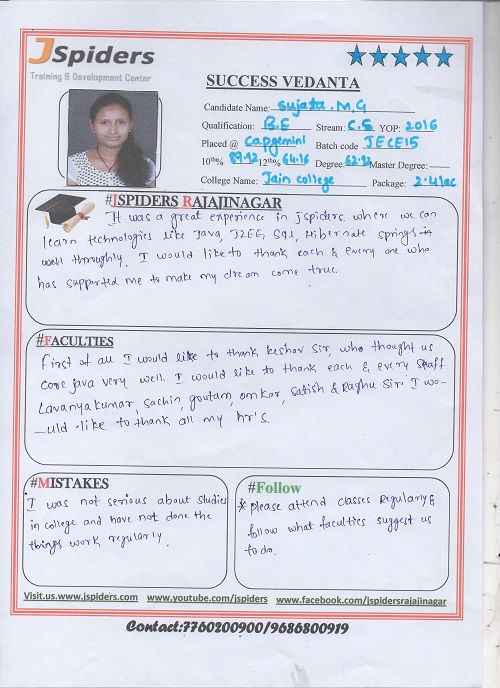 JSpiders
Training & Development Center
SUCCESS VEDANTA
Candidate Name: Sujata.M.G
Qualification: B.E Stream: C.S YOP: 2016
Placed @ Capgemini Batch code JECE15
10th% 89.12 12th% 64.16 Degree: 62.92 Master Degree:
College Name: Jain college Package: 2.4lac
#JSPIDERS RAJAJINAGAR
It was a great experience in jspiders. where we can
learn technologies like Java, J2EE, SQL, Hibernate springs in
well throughly. I would like to thank each & every one who
has supported me to make my dream come true.
#FACULTIES
First of all I would like to thank Keshav Sir, who thought us
Core java very well. I would like to thank each & every staff
Lavanyakumar, sachin, goutam, omkar, satish & Raghu Sir. I wo-
-uld -like to thank all my hr's.
#MISTAKES
I was not serious about studies
in college and have not done the
things work regularly.
#Follow
* please attend classes Regularly &
follow what faculties suggest us
to do.
Visit.us.www.jspiders.com www.youtube.com/jspiders www.facebook.com/jspidersrajajinagar
Contact:7760200900/9686800919